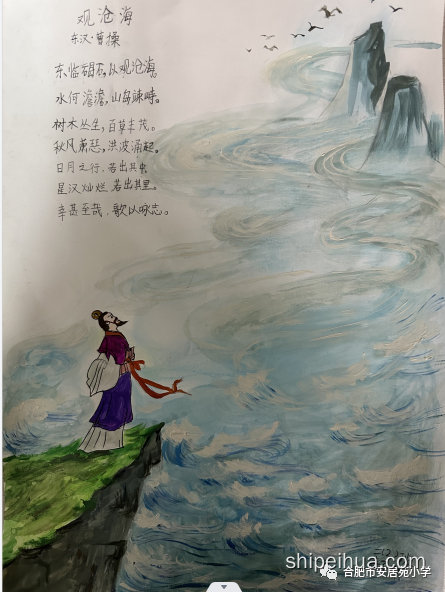 观沧海
东汉·曹操
东临碣石,以观沧海。
水何澹澹,山岛竦峙。
树木丛生,百草丰茂。
秋风萧瑟,洪波涌起。
日月之行,若出其中
星汉灿烂,若出其里。
幸甚至哉,歌以咏志。
shipeihua.com
合肥市安居苑小学